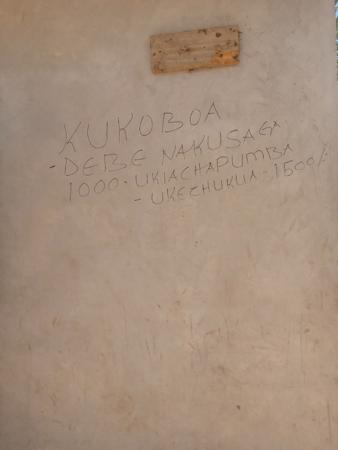 KUKOBOA
- DEBE NAKUSAGA
1000 - UKIACHAPUMBA
- UKECHUKUA - 1500/-